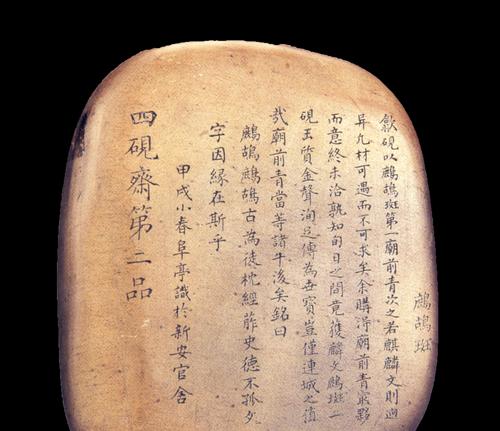 鷓鴣斑
歙硯以鷓鴣斑第一廟前青次之若麒麟文則迥
异凡材可遇而不可求矣余購得廟前青最夥
而意終未洽孰知旬日之間竟獲麟文鷓斑一
硯玉質金聲洵足傳為吾寶豈僅連城之值
哉廟前青當等諸牛後矣銘曰
鷓鴣鷓鴣古為徒枕經葄史德不孤文
字因緣在斯乎
甲戌小春阜亭識於新安官舍
四硯齋第二品